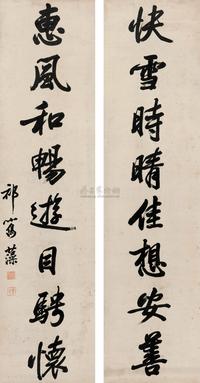 快雪時晴佳想安善
惠風和暢遊目騁懷
祁寯藻